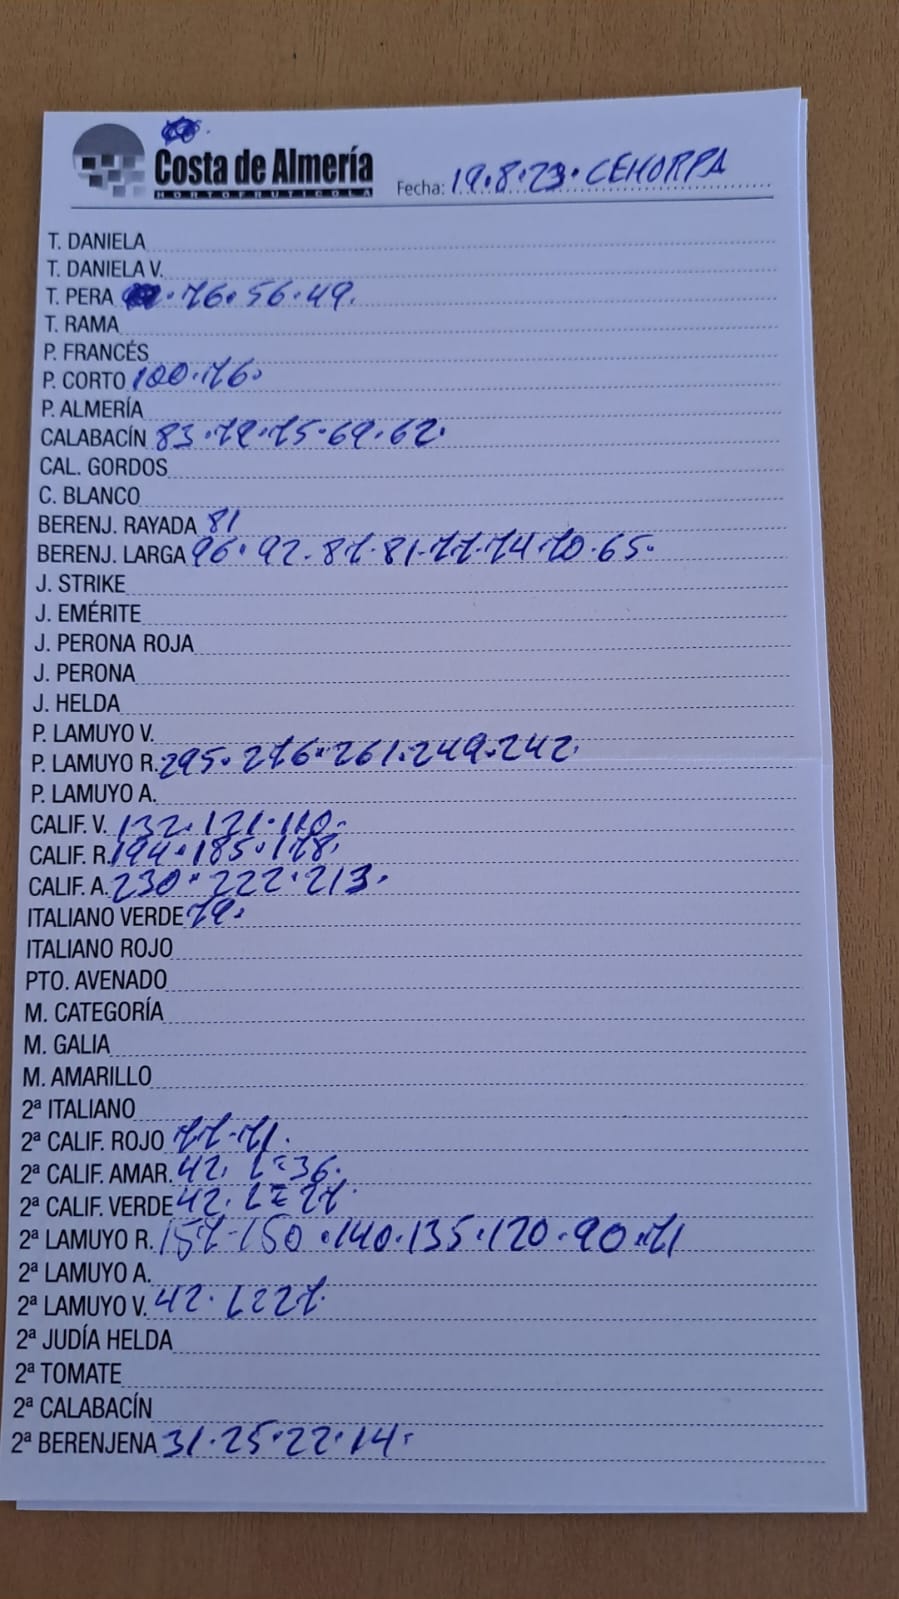 Costa de Almería
HORTOFRUTICOLA
Fecha: 19.8.23. CEHORPA
T. DANELA
T. DANIELA V.
T. PERA 76. 56. 49.
T. RAMA
P. FRANCÉS
P. CORTO 100. 76.
P. ALMERÍA
CALABACÍN 83. 79. 75. 69. 62.
CAL. GORDOS
C. BLANCO
BERENJ. RAYADA 81
BERENJ. LARGA 96. 92. 87. 81. 77. 74. 70. 65.
J. STRIKE
J. EMÉRITE
J. PERONA ROJA
J. PERONA
J. HELDA
P. LAMUYO V.
P. LAMUYO R. 295. 276. 261. 249. 242.
P. LAMUYO A.
CALIF. V. 132. 121. 110.
CALIF. R. 194. 185. 178.
CALIF. A. 230. 222. 213.
ITALIANO VERDE 79.
ITALIANO ROJO
PTO. AVENADO
M. CATEGORÍA
M. GALIA
M. AMARILLO
2ª ITALIANO
2ª CALIF. ROJO 77. 71.
2ª CALIF. AMAR. 42. L=36.
2ª CALIF. VERDE 42. L=27.
2ª LAMUYO R. 157. 150. 140. 135. 120. 90. 71
2ª LAMUYO A.
2ª LAMUYO V. 42. L=27.
2ª JUDÍA HELDA
2ª TOMATE
2ª CALABACÍN
2ª BERENJENA 31. 25. 22. 14.